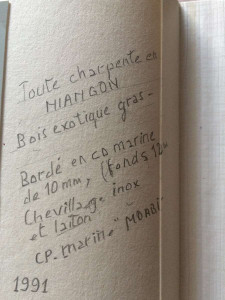 Toute charpente en
NIANGON
Bois exotique gras -
Bordé en co marine
de 10mm, (fonds 12"
Chevillage inox
et laiton
CP. marine "MOABI"
1991